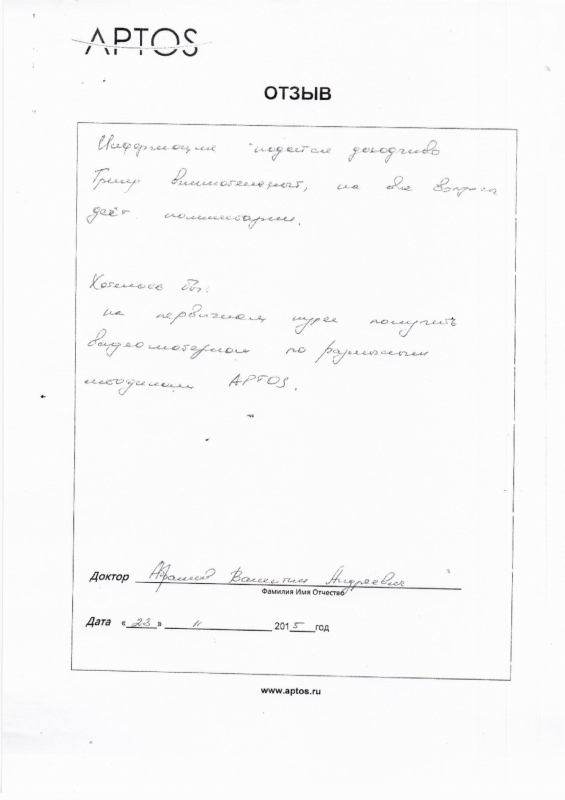 APTOS
ОТЗЫВ
Информация подается доходчиво
внимательный, на все вопросы
даёт комментарии.
Хотелось бы:
на первичном курсе получить
видеоматериал по различным
методикам APTOS.
Доктор Валентин Андреевич
Фамилия Имя Отчество
Дата «23» 11 2015 год
www.aptos.ru